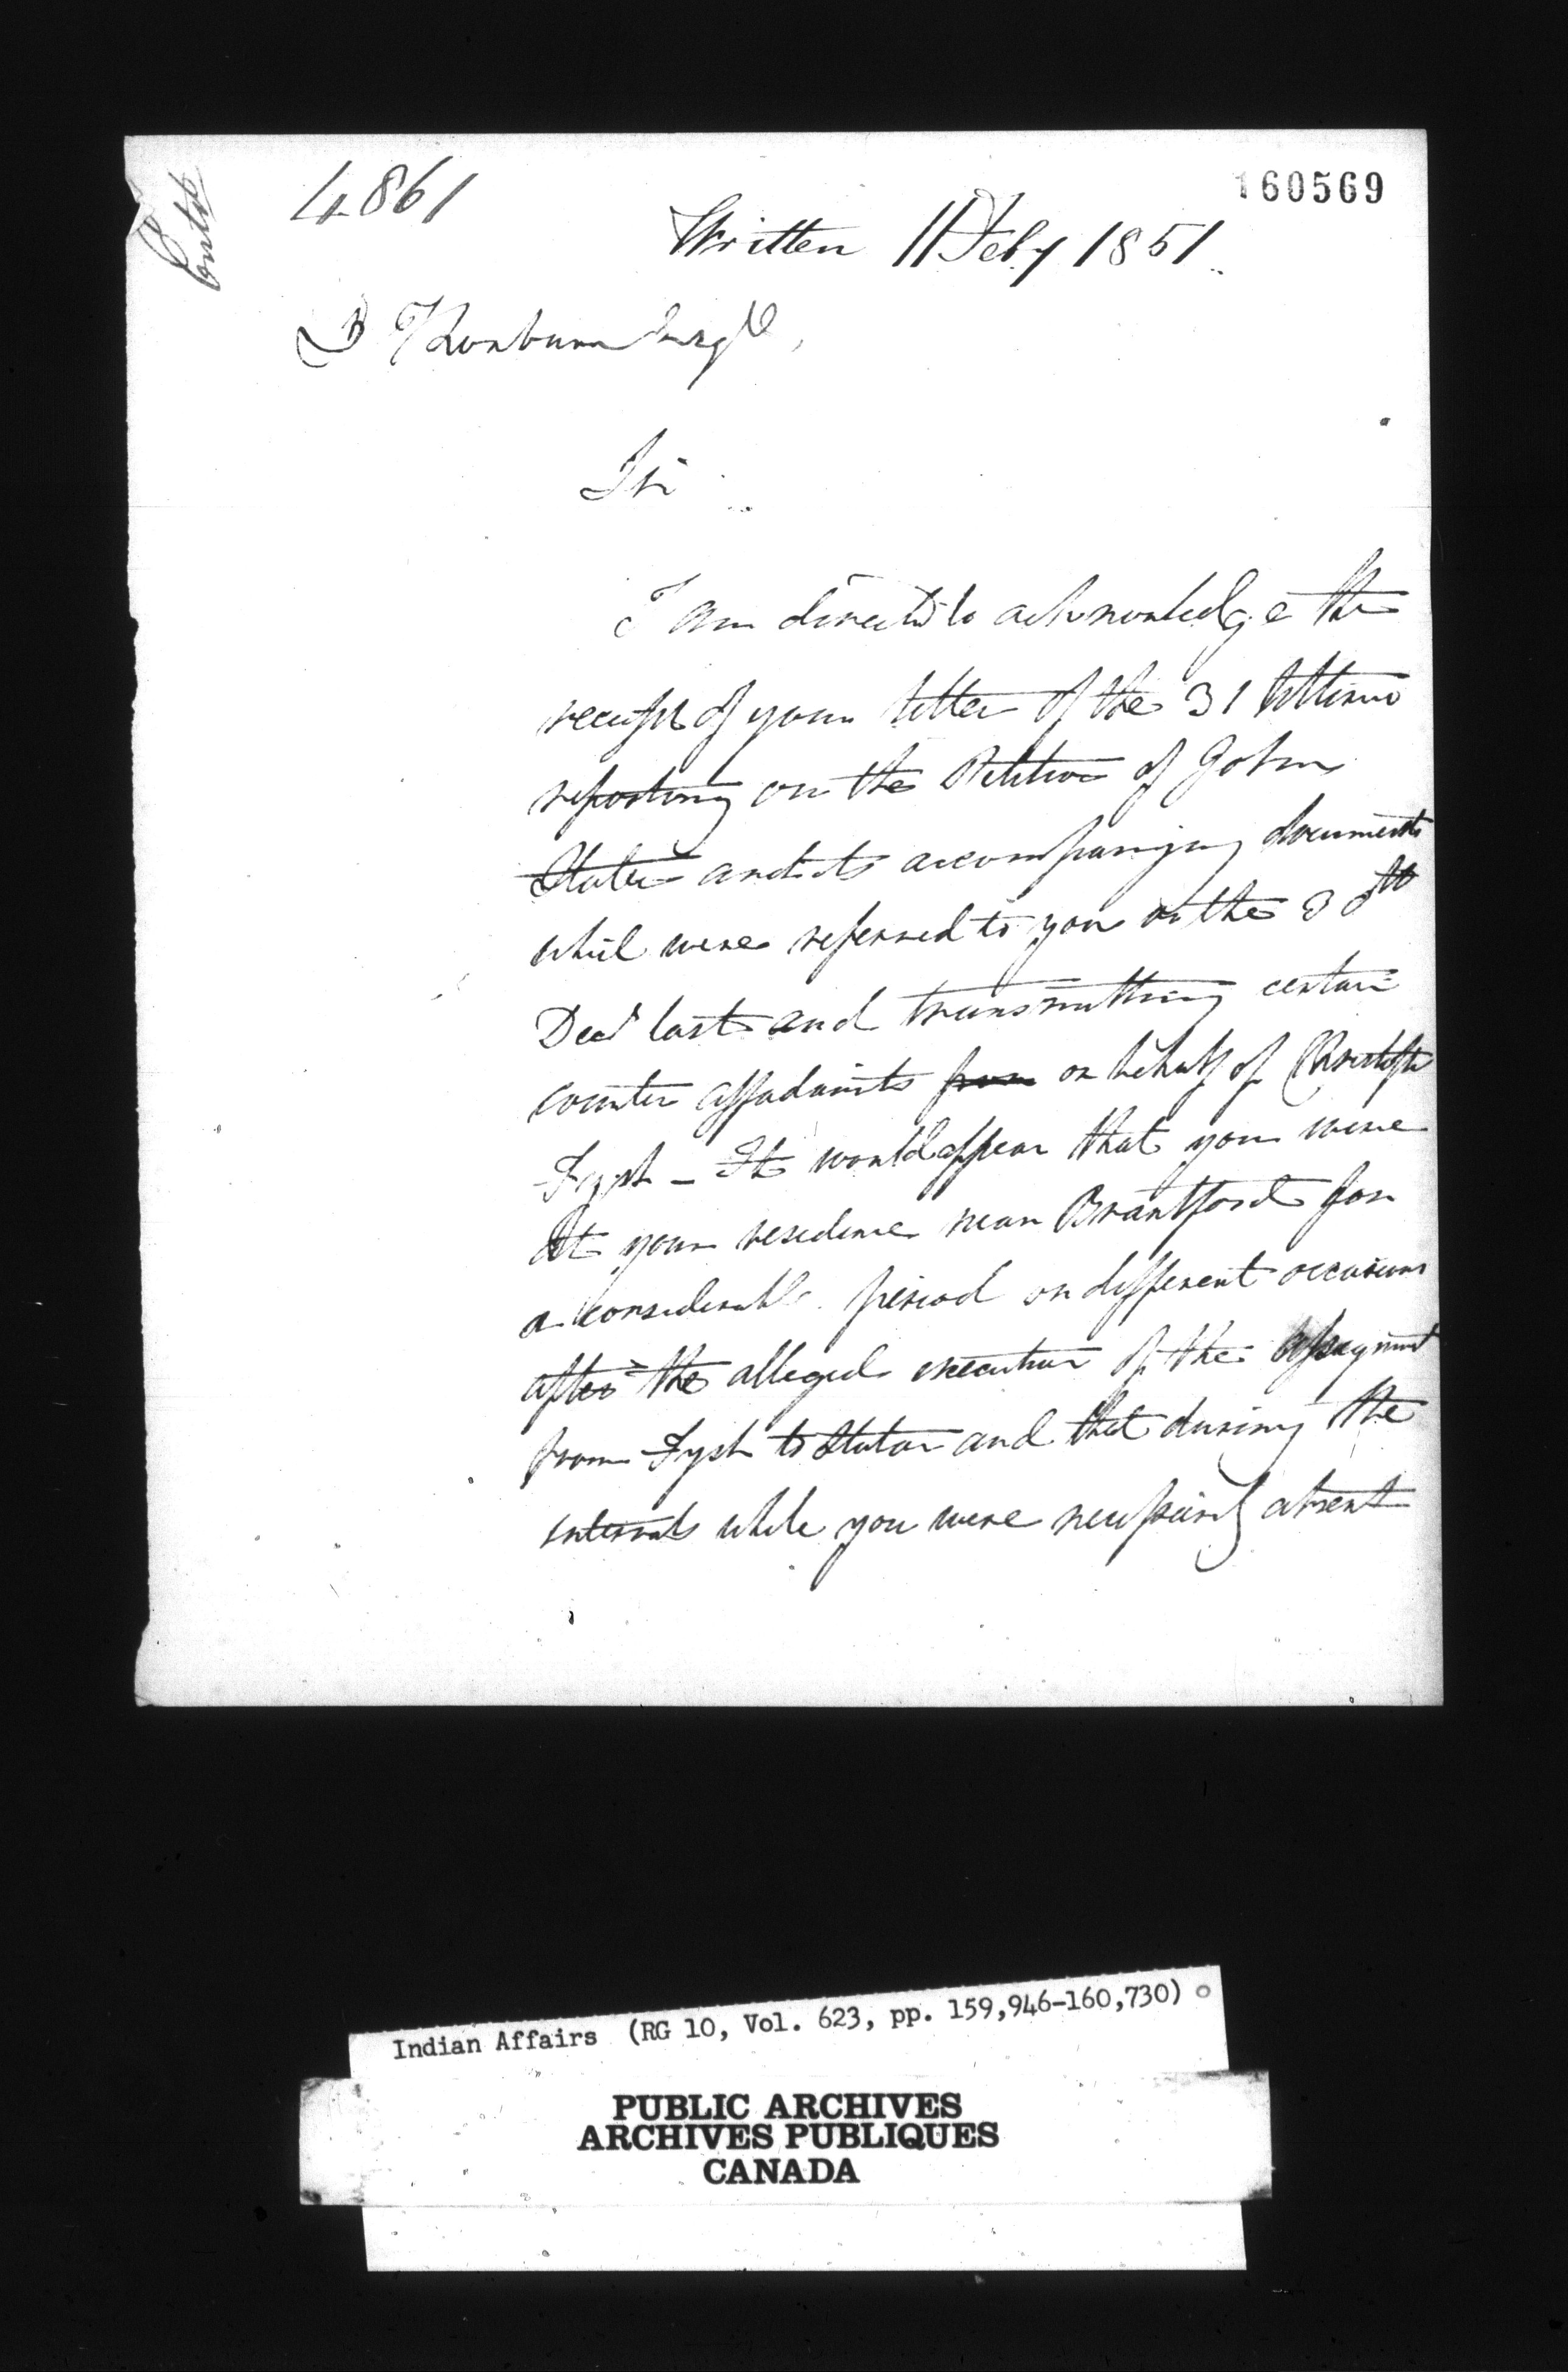 Entd
4861
160569
Written 11 Feby 1851
D Thorburn Esqre,
Sir
I am directed to acknowledge the
receipt of your letter of the 31 Ultimo
reporting on the Petition of John
Slater and its accompanying documents
which were referred to you on the 30th
Decr last and transmitting certain
counter affadavits from on behalf of Christopr
Fysh - It would appear that you were
At your residence near Brantford for
a considerable period on different occasions
after the alleged execution of the assignmt
from Fysh to Slater and that during the
intervals while you were necessarily absent
Indian Affairs (RG 10, Vol. 623, pp. 159,946-160,730)
PUBLIC ARCHIVES
ARCHIVES PUBLIQUES
CANADA